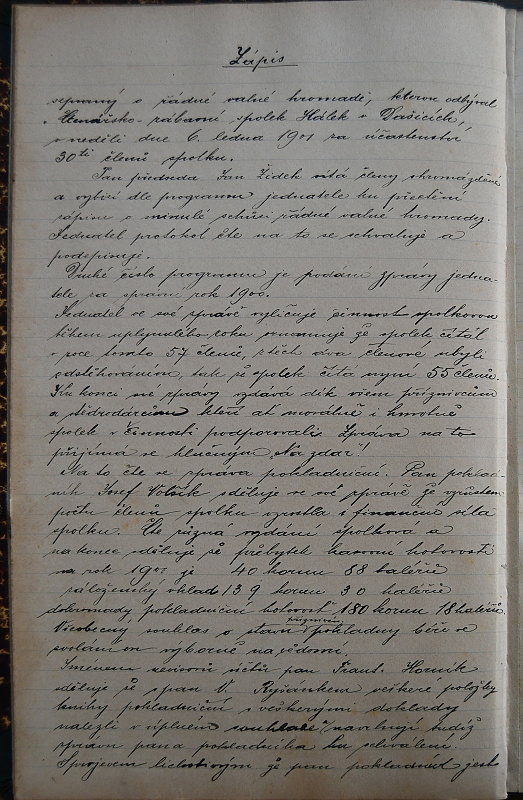 Zápis
sepsaný o řádné valné hromadě, kterou odbýval
Čtenářsko-zábavní spolek Hálek v Dašicích,
v neděli dne 6. ledna 1901 za účastenství
30ti členů spolku.
Pan předseda Jan Žídek vítá členy shromážděné
a vybízí dle programu jednatele ku přečtení
zápisu o minulé schůzi řádné valné hromady.
Jednatel protokol čte na to se schvaluje a
podepisuje.
Druhé číslo programu je podání zprávy jedna-
tele za správní rok 1900.
Jednatel ve své zprávě vyličuje činnost spolkovou
během uplynulého roku oznamuje že spolek čítal
v roce tomto 57 členů, z těch dva členové ubyli
odstěhováním, tak že spolek čítá nyní 55 členů.
Ku konci své zprávy vzdává dík všem příznivcům
a štědrodárcům kteří ať morálně i hmotně
spolek v činnosti podporovali. Zpráva na to
přijímá se hlučným „Na zdar"!
Na to čte se zpráva pokladniční. Pan poklad-
ník Josef sděluje ve své zprávě že vzrůstem
počtu členů spolku vzrostla i finanční síla
spolku. Čte různá vydání spolková a
na konec sděluje že přebytek hotovosti
na rok 1901 je 40 korun 88 haléřů
záloženský vklad 139 korun 30 haléřů
dohromady pokladniční hotovost 180 korun 18 haléřů.
Všeobecný souhlas o stavu příznivém pokladny béře se
svoláním výborně na vědomí.
Jmenem revisorů účtů pan Frant. Horník
sděluje že s pan V. Ryšánkem veškeré položky
knihy pokladniční s veškerými doklady
nalezli v úplném souhlase navrhují tudíž
zprávu pana pokladníka ku schválení.
že pan pokladník jest